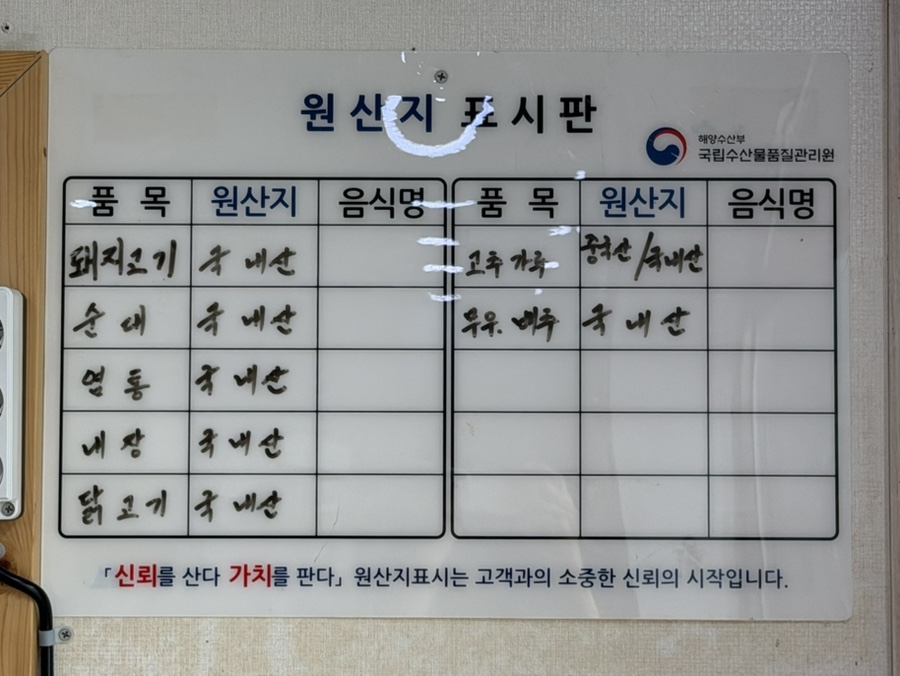 원산지 표시판
해양수산부
국립수산물품질관리원
품 목 원산지 음식명 품 목 원산지 음식명
돼지고기 국내산 고추가루 중국산/국내산
순대 국내산 무우. 배추 국내산
염통 국내산
내장 국내산
닭고기 국내산
「신뢰를 산다 가치를 판다」 원산지표시는 고객과의 소중한 신뢰의 시작입니다.